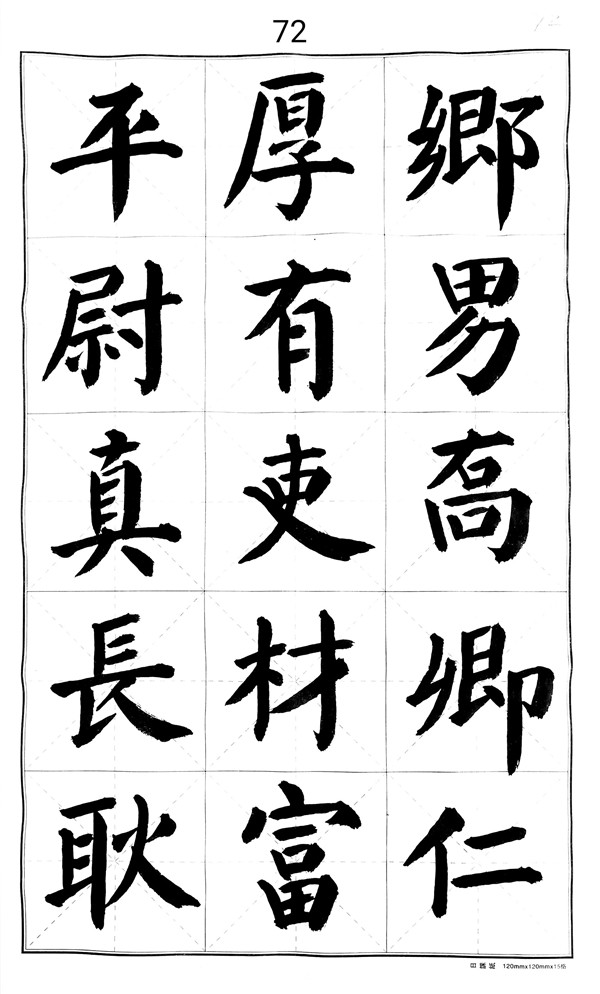 72
鄉男高卿仁
厚有吏材富
平尉真長耿
120mmx120mmx15格